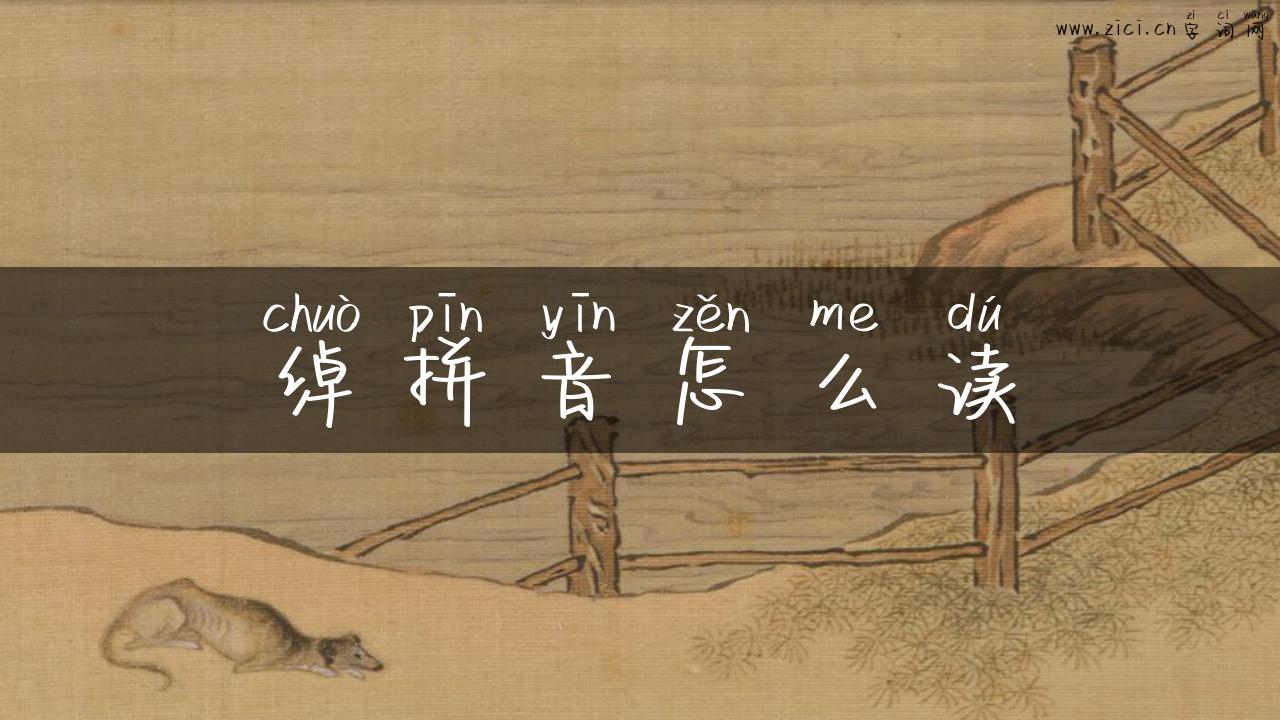 zì cí wǎng
www.zici.cn 字词网
chuò pīn yīn zěn me dú
绰拼音怎么读